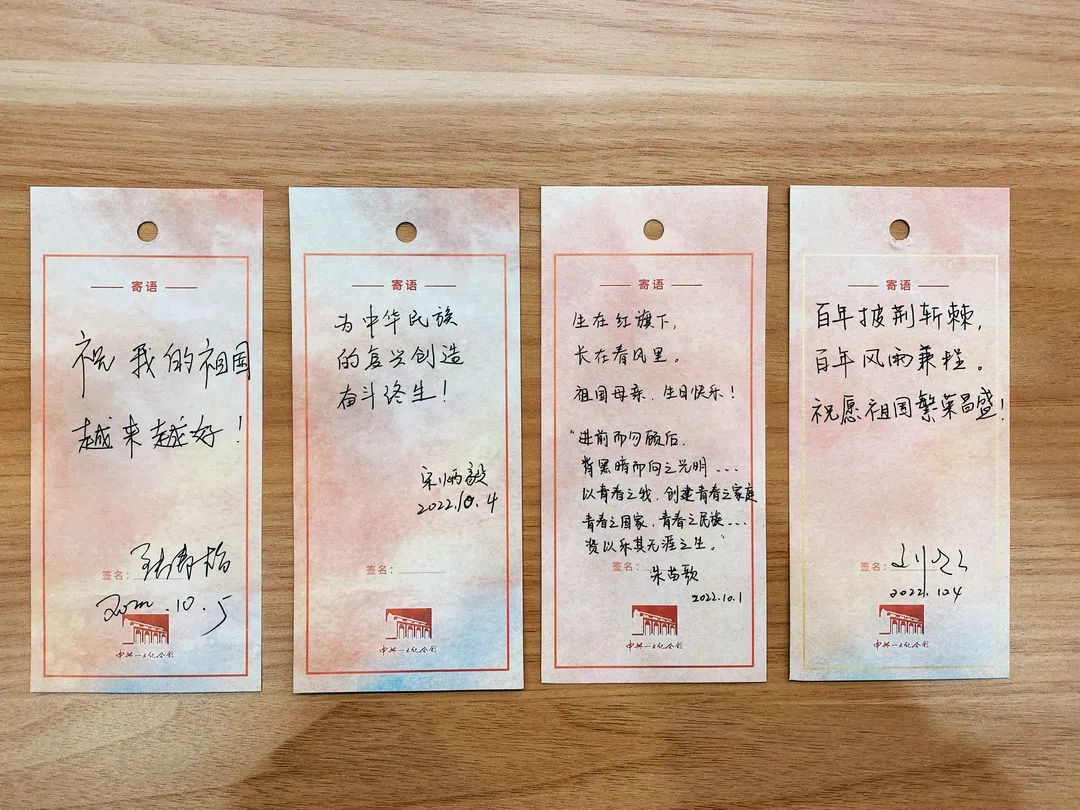 寄语
祝我的祖国
越来越好！
签名：
2022.10.5
中共一大纪念馆
寄语
为中华民族
的复兴创造
奋斗终生！
宋炳毅
2022.10.4
签名：
中共一大纪念馆
寄语
生在红旗下，
长在春风里。
祖国母亲，生日快乐！
“进前而勿顾后，
背黑暗而向之光明...
以青春之我，创建青春之家庭
青春之国家，青春之民族...
资以乐其无涯之生。”
签名：朱苗歌
2022.10.1
中共一大纪念馆
寄语
百年披荆斩棘，
百年风雨兼程。
祝愿祖国繁荣昌盛！
签名：
2022.10.4
中共一大纪念馆